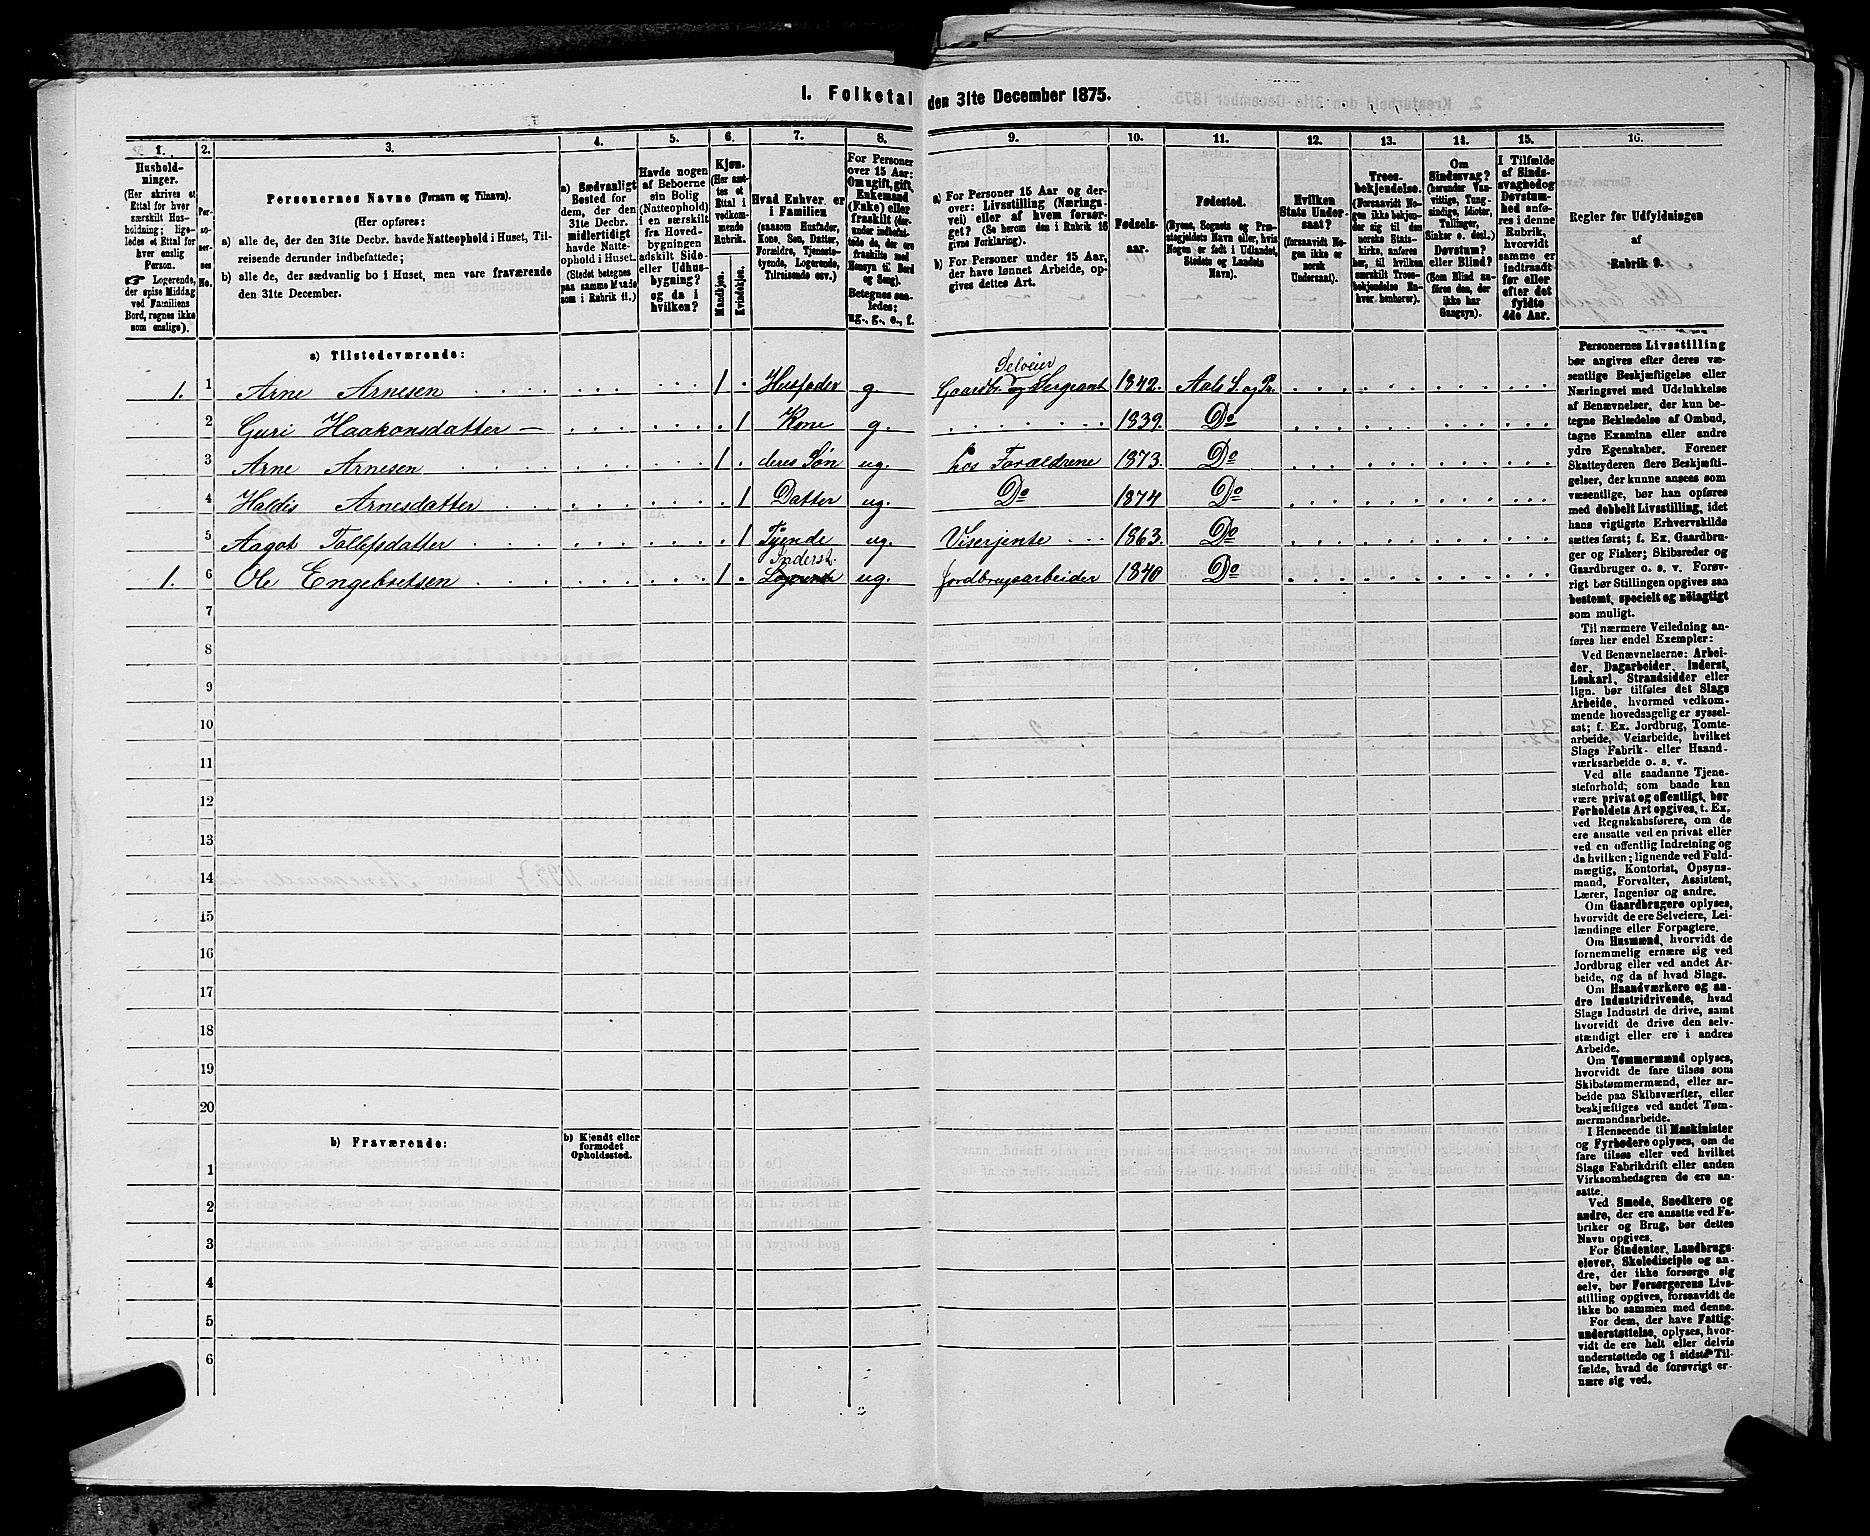 I. Folketal den 31te December 1875.
1. 2. 3. 4. 5. 6. 7. 8. 9. 10. 11. 12. 13. 14. 15. 16.
Husholdninger.
(Her skrives et
Ettal for hver
særskilt Husholdning;
ligeledes et Ettal for
hver enslig
Person.
☞ Logerende,
der spise Middag
ved Familiens
Bord, regnes ikke
som enslige).
Personernes No.
Personernes Navne (Fornavn og Tilnavn).
(Her opføres:
a) alle de, der den 31te Decbr. havde Natteophold i Huset, Tilreisende
derunder indbefattede;
b) alle de, der sædvanlig bo i Huset, men vare fraværende
den 31te December.
a) Sædvanligt
Bosted for
dem, der den
31te Decbr.
midlertidigt
havde Natteophold
i Huset.
(Stedet betegnes
paa samme Maade
som i Rubrik 11.)
Havde nogen
af Beboerne
sin Bolig
(Natteophold)
i en særskilt
fra Hovedbygningen
adskilt Side-
eller Udhusbygning?
og da i
hvilken?
Kjøn.
(Her sættes
et
Ettal i
vedkommende
Rubrik.
Mandkjøn.
Kvindekjøn.
Hvad Enhver er
i Familien
(saasom Husfader,
Kone, Søn, Datter,
Forældre, Tjenestetyende,
Logerende,
Tilreisende osv.)
For Personer
over 15 Aar:
Om ugift, gift,
Enkemand
(Enke) eller
fraskilt (derunder
indbefattede
de, der ere
fraskilte med
Hensyn til Bord
og Seng).
Betegnes saaledes:
ug., g., e., f.
a) For Personer 15 Aar og derover:
Livsstilling (Næringsvei)
eller af hvem forsørget?
(Se herom den i Rubrik 16
givne Forklaring).
b) For Personer under 15 Aar,
der have lønnet Arbeide, opgives
dettes Art.
Fødselsaar.
Fødested.
(Byens, Sognets og Præstegjeldets
Navn eller, hvis
Nogen er født i Udlandet,
Stedets og Landets
Navn).
Hvilken
Stats Undersaat?
(forsaavidt Nogen
ikke er
norsk
Undersaat).
Troesbekjendelse.
(Forsaavidt Nogen
ikke bekjender
sig til den
norske Statskirke,
anføres
her, til hvilken
særskilt Troesbekjendelse
Enhver
henhører).
Om
Sindssvag?
(herunder Vanvittige,
Tungsindige,
Idioter,
Tullinger,
Sinker o. desl.)
Døvstum?
eller Blind?
(Som Blind anføres
den, der
ikke har
Gangsyn).
I Tilfælde
af Sindssvaghed
og
Døvstumhed
anføres
i denne
Rubrik,
hvorvidt
samme er
indtraadt
før eller
efter det
fyldte
4de Aar.
Regler for Udfyldningen
af
Rubrik 9.
a) Tilstedeværende:
Selveier
1. 1 Arne Arnesen 1 Husfader g Gaardbr. og Sergeant 1842. Aals S. og Pr.
2 Guri Haakonsdatter 1 Kone g. 1839. Do
3 Arne Arnesen 1 deres Søn ug. hos Forældrene 1873. Do
4 Haldis Arnesdatter 1 Datter ug. Do 1874 Do
5 Aagot Tollefsdatter 1 Tyende ug. Viserjente 1863. Do
Inderst.
1. 6 Ole Engebretsen 1 Logerende ug. Jordbrugsarbeider 1840 Do
7
8
9
10
11
12
13
14
15
16
17
18
19
20
b) Fraværende:
b) Kjendt eller
formodet
Opholdssted.
1
2
3
4
5
6
Personernes Livsstilling
bør angives efter deres væsentlige
Beskjæftigelse eller
Næringsvei med Udelukkelse
af Benævnelser, der kun betegne
Beklædelse af Ombud,
tagne Examina eller andre
ydre Egenskaber. Forener
Skatteyderen flere Beskjæftigelser,
der kunne ansees som
væsentlige, bør han opføres
med dobbelt Livsstilling, idet
hans vigtigste Erhvervskilde
sættes først; f. Ex. Gaardbruger
og Fisker; Skibsreder og
Gaardbruger o. s. v. Forøvrigt
bør Stillingen opgives saa
bestemt, specielt og nöiagtigt
som muligt.
Til nærmere Veiledning anføres
her endel Exempler:
Ved Benævnelserne: Arbeider,
Dagarbeider, Inderst,
Løskarl, Strandsidder eller
lign. bør tilføies det Slags
Arbeide, hvormed vedkommende
hovedsagelig er sysselsat;
f. Ex. Jordbrug, Tomtearbeide,
Veiarbeide, hvilket
Slags Fabrik- eller Haandværksarbeide
o. s. v.
Ved alle saadanne Tjenesteforhold,
som baade kan
være privat og offentligt, bør
Forholdets Art opgives, t. Ex.
ved Regnskabsførere, om de
ere ansatte ved en privat eller
ved en offentlig Indretning og
da hvilken; lignende ved Fuldmægtig,
Kontorist, Opsynsmand,
Forvalter, Assistent,
Lærer, Ingeniør og andre.
Om Gaardbrugere oplyses,
hvorvidt de ere Selveiere, Leilændinge
eller Forpagtere.
Om Husmænd, hvorvidt de
fornemmelig ernære sig ved
Jordbrug eller ved andet Arbeide,
og da af hvad Slags.
Om Haandværkere og andre
Industridrivende, hvad
Slags Industri de drive, samt
hvorvidt de drive den selvstændigt
eller ere i andres
Arbeide.
Om Tømmermænd oplyses,
hvorvidt de fare tilsøs som
Skibstømmermænd, eller arbeide
paa Skibsværfter, eller
beskjæftiges ved andet Tømmermandsarbeide.
I Henseende til Maskinister
og Fyrbødere oplyses, om de
fare tilsøs eller ved hvilket
Slags Fabrikdrift eller anden
Virksomhedsgren de ere ansatte.
Ved Smede, Snedkere og
andre, der ere ansatte ved Fabriker
og Brug, bør dettes
Navn opgives.
For Studenter, Landbrugselever,
Skoledisciple og andre,
der ikke forsørge sig
selv, bør Forsørgerens Livsstilling
opgives, forsaavidt de
ikke bo sammen med denne.
For dem, der have Fattigunderstøttelse,
oplyses, hvorvidt
de ere helt eller delvis
understøttede og i sidste Tilfælde,
hvad de forøvrigt ernære
sig ved.